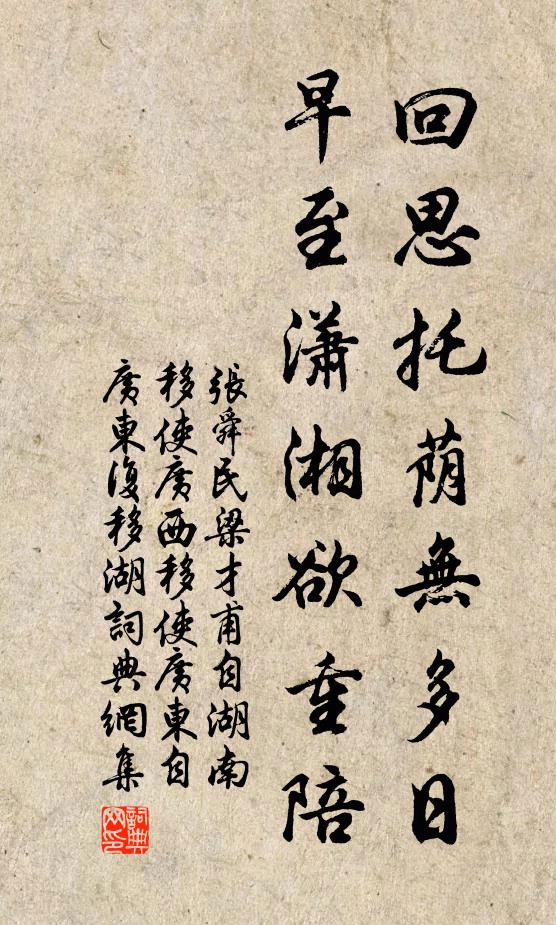 回思托荫無多日
早至瀟湘欲重陪
張舜民梁才甫自湖南
移使廣西移使廣東自
廣東復移湖詞典網集
詞典网印